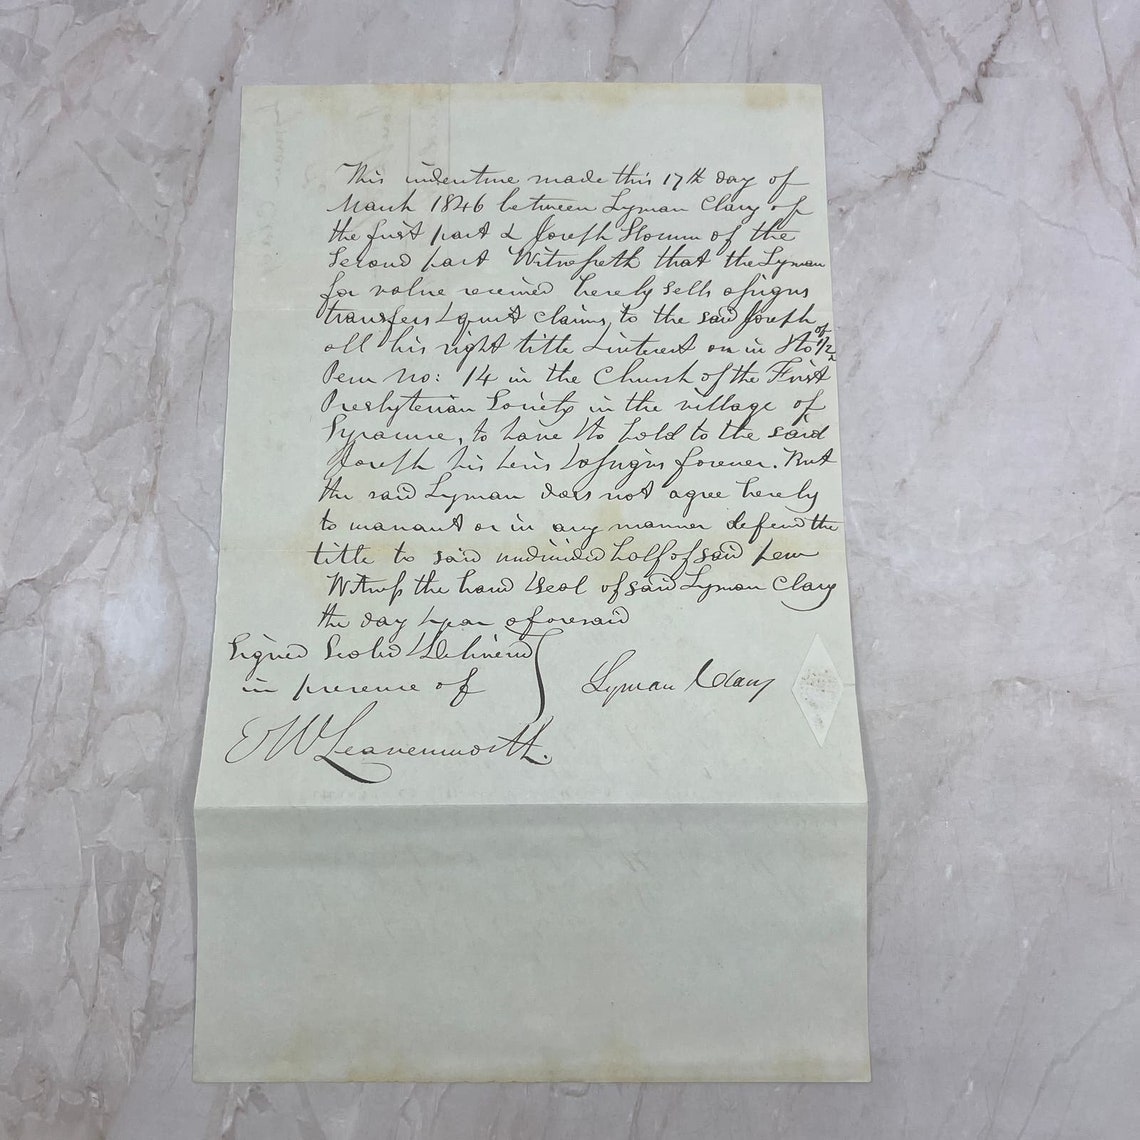 This indenture made this 17th day of
March 1846 between Lyman Clary of
the first part & Joseph Slocum of the
Second part Witnesseth that the Lyman
for value received hereby sells assigns
transfers & quit claims, to the said Joseph
all his right title & interest on in & to of 1/2
Pew no: 14 in the Church of the First
Presbyterian Society in the village of
Syracuse, to have & to hold to the said
Joseph his heirs & assigns forever. But
the said Lyman does not agree hereby
to warrant or in any manner defend the
title to said undivided half of said pew
Witness the hand & seal of said Lyman Clary
the day & year aforesaid
Signed Sealed & Delivered
in presence of
Lyman Clary
E W Leavenworth.